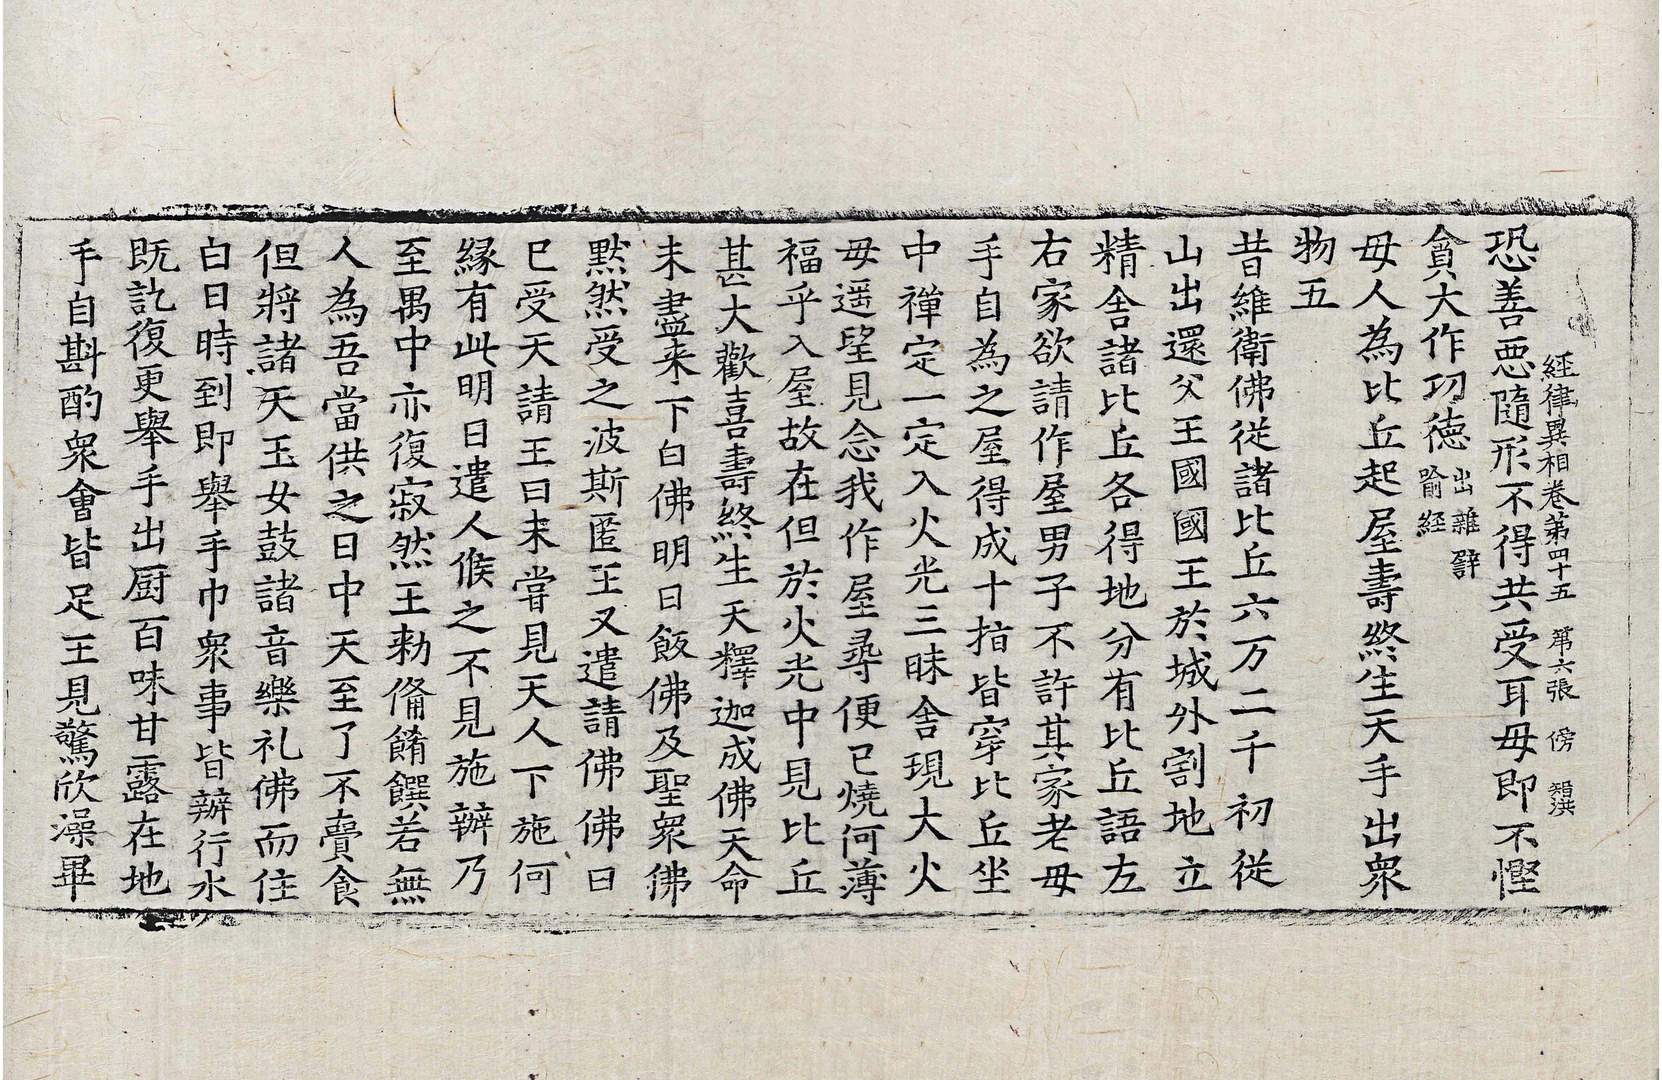 經律異相卷第四十五 第六張 傍
恐善惡隨形不得共受耳毋即不慳
貪大作功德出雜譬喻經
毋人為比丘起屋壽終生天手出衆
物五
昔維衛佛從諸比丘六万二千初從
山出還父王國國王於城外割地立
精舍諸比丘各得地分有比丘語左
右家欲請作屋男子不許其家老毋
手自為之屋得成十指皆穿比丘坐
中禪定一定入火光三昧舍現大火
毋遥望見念我作屋尋便已燒何薄
福乎入屋故在但於火光中見比丘
甚大歡喜壽終生天釋迦成佛天命
未盡来下白佛明日飯佛及聖衆佛
默然受之波斯匿王又遣請佛佛曰
已受天請王曰未甞見天人下施何
縁有此明日遣人候之不見施辦乃
至禺中亦復寂然王勑俻餚饌若無
人為吾當供之日中天至了不賷食
但將諸天玉女鼓諸音樂礼佛而住
白日時到即舉手巾衆事皆辦行水
既訖復更舉手出厨百味甘露在地
手自斟酌衆會皆足王見驚欣澡畢